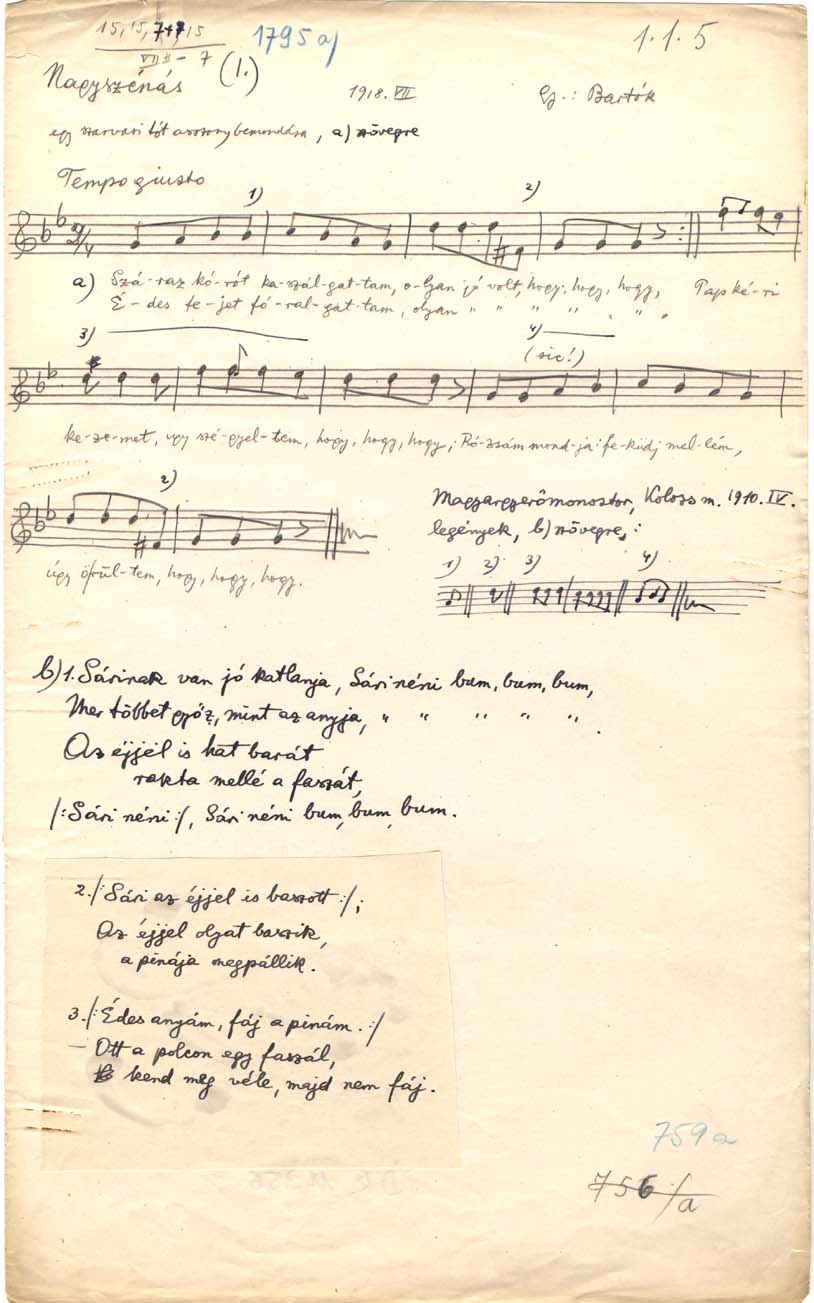 15, 15, 7+7, 15
VII - 7
1795 a)
1.1.5
Nagyszénás (1.)
1918. VII
Gy.: Bartók
egy szarvasi tót asszony bemondása, a) szövegre
Tempo giusto
1) 2)
2/4
a) Szá-raz kó-rót ka-szál-gat-tam, o-lyan jó volt, hogy, hogy, hogy, Tap ké-ri
É-des te-jet fó-ral-gat-tam, olyan " " " " " "
3) 4)
(sic!)
ke-ze-met, ugy szé-gyel-tem, hogy, hogy, hogy; Ró-zsám mond-ja: fe-küdj mel-lém,
2)
úgy örül-tem, hogy, hogy, hogy.
Magyargyerőmonostor, Kolozs m. 1910. IV.
legények, b) szövegre:
1) 2) 3) 4)
b) 1. Sárinak van jó katlanja, Sári néni bum, bum, bum,
Mer többet győz, mint az anyja, " " " " " .
Az éjjel is hat barát
rakta mellé a faszát,
/: Sári néni :/, Sári néni bum, bum, bum.
2. /: Sári az éjjel is baszott :/;
Az éjjel olyat baszik,
a pinája megpállik.
3. /: Édes anyám, fáj a pinám. :/
– Ott a polcon egy faszál,
kend meg véle, majd nem fáj.
759 a
756/a